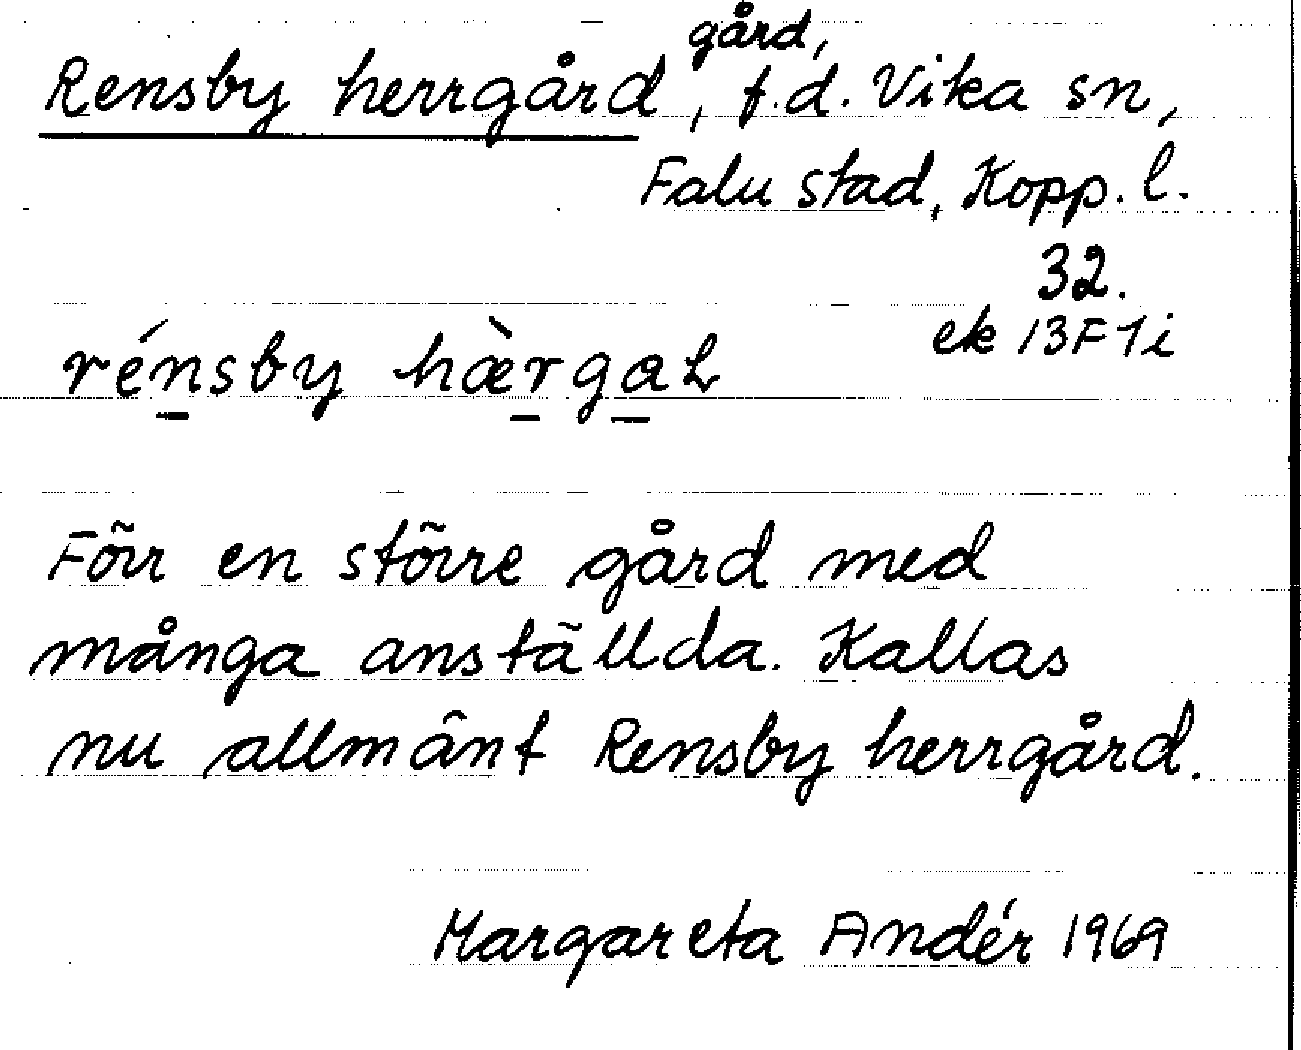 Rensby herrgård, gård, f.d. Vika sn,
Falu stad, Kopp. l.
32.
ek 13F 7i
rénsby hæ̀rgaL
Förr en större gård med
många anställda. Kallas
nu allmänt Rensby herrgård.
Margareta Andér 1969